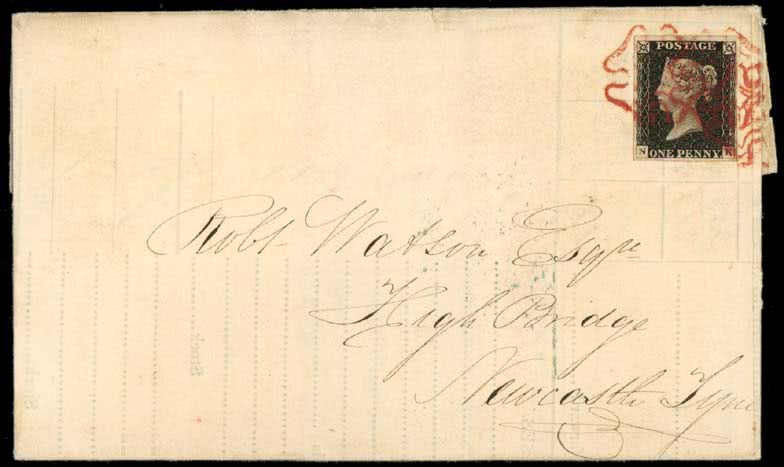 POSTAGE
N K
ONE PENNY
Robt Watson Esqre
High Bridge
Newcastle Tyne